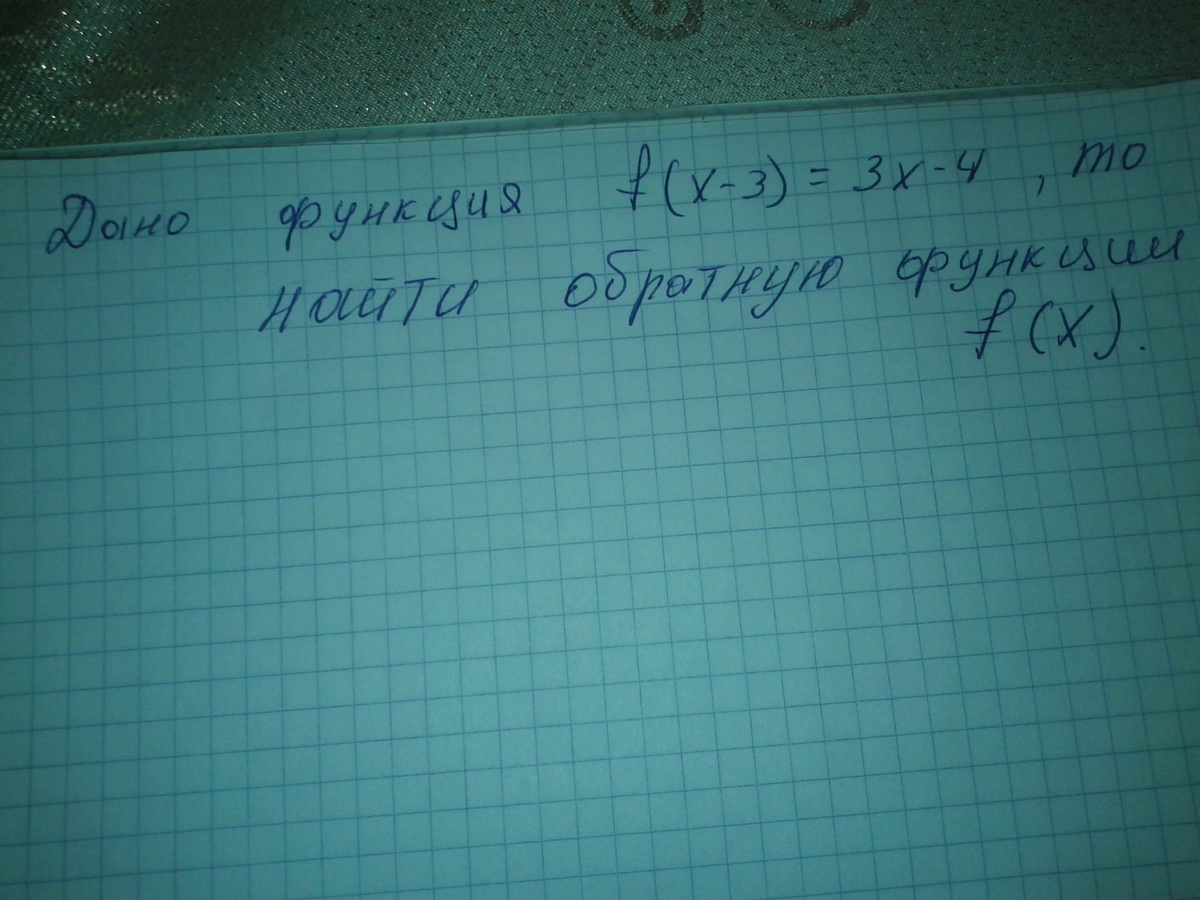 Дано функция f(x-3) = 3x-4 , то
найти обратную функции
f(x).